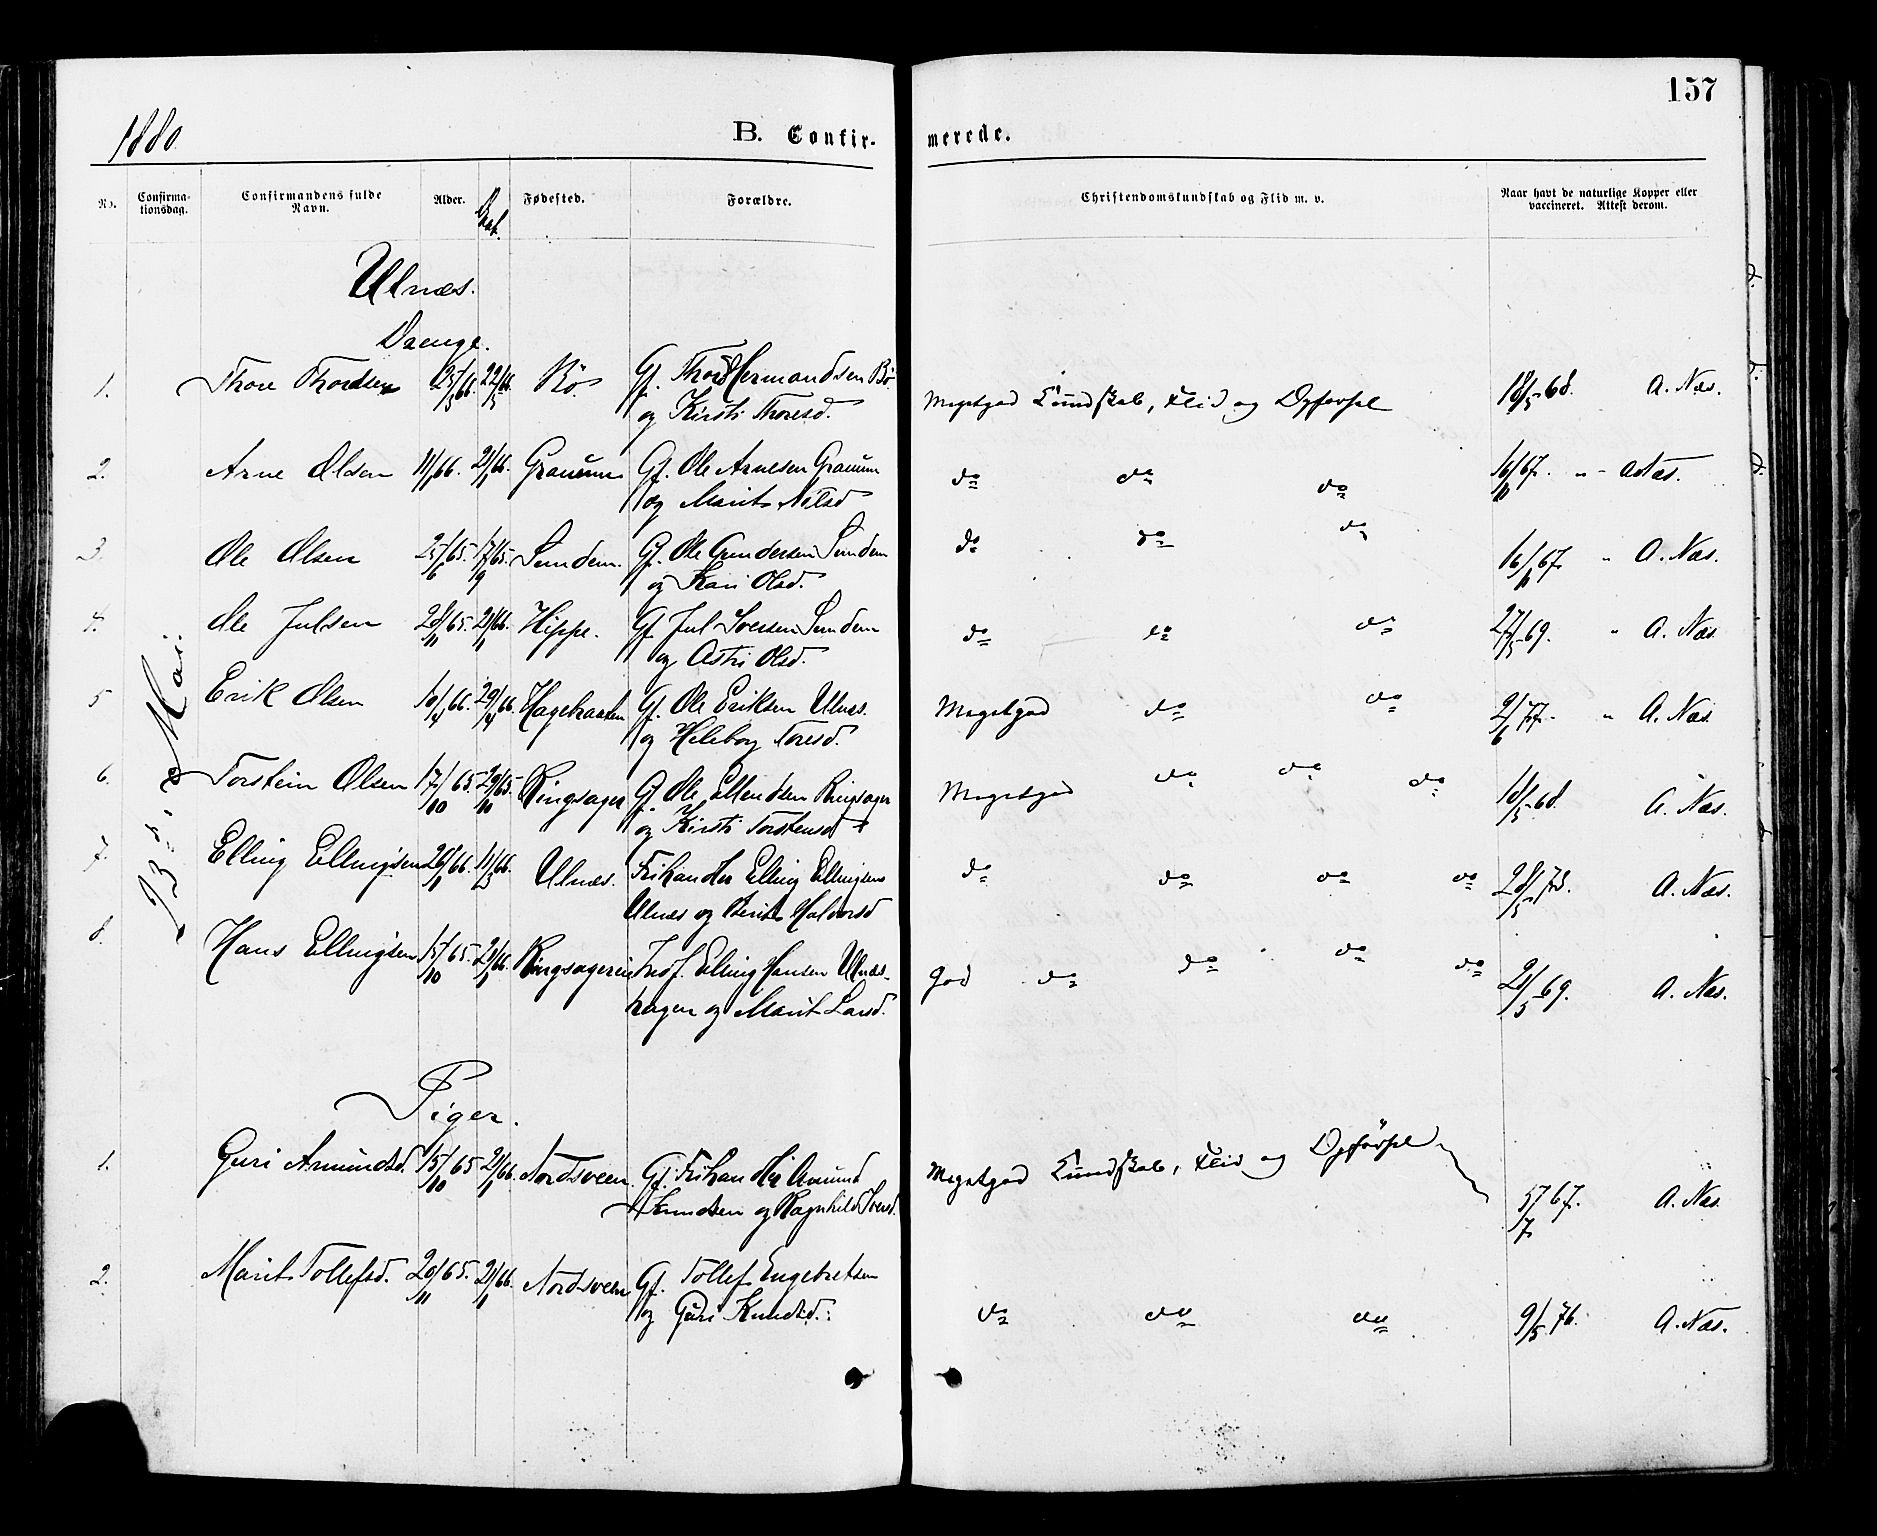 157
1880.
B. Confir- merede.
No. Confirma-tionsdag. Confirmandens fulde Navn. Alder. Fødested. Forældre. Christendomskundskab og Flid m. v. Naar havt de naturlige Kopper eller vaccineret. Attest derom.
Ulnæs.
Drenge.
23de Mai.
1. Thore Thordsen 25/3 66. 22/5 66. Bö. Gf. Thord Hermandsen Bö Megetgod Kundskab, Flid og Opførsel 18/5 68. A. Næs.
og Kirsti Thoresd.
2. Arne Olsen 11/1 66. 21/1 66. Granum Gf. Ole Arnesen Granum do do do 16/11 67. " A. Næs.
og Marit Nilsd
3. Ole Olsen 25/6 65. 17/9 65. Sundem. Gf. Ole Gundersen Sundem do do do 16/11 67. " A. Næs.
og Kari Olsd.
4. Ole Julsen 28/11 65. 21/1 66. Hippe. Gf. Jul Iversen Sundem do do do 27/5 69. " A. Næs
og Astri Olsd.
5 Erik Olsen 10/4 66. 29/4 66. Hagebraaten Gf. Ole Eriksen Ulnæs. Megetgod do do 2/6 77. " A. Næs
og Helebor Toresd.
6. Torstein Olsen 17/10 65. 29/10 65. Ringsager Gf. Ole Ellendsen Ringsager Megetgod do do do 18/5 68. A. Næs.
og Kirsti Torstensd
7. Elling Ellingsen 26/1 66. 11/3 66. Ulnæs. Frihandler Elling Ellingsen do do do do 28/5 78. A. Næs.
Ulnæs og Berit Halvorsd
8. Hans Ellingsen 15/10 65. 21/1 66. Ringsagerei Indf. Elling Hansen Ulnæs- God do do do do 21/5 69. A. Næs.
hagen og Marit Larsd.
Piger.
1. Guri Amundsd. 15/10 65 21/1 66. Nordsveen. Gf. Frihandler Amund Megetgod Kundskab, Flid og Opförsel 5/7 67. A. Næs
Knudsen og Ragnhild Iversd.
2. Marit Tollefsd. 20/11 65. 21/1 66. Nordsveen Gf. Tollef Engebretsen do do do 9/5 76. A. Næs.
og Guri Knudsd.